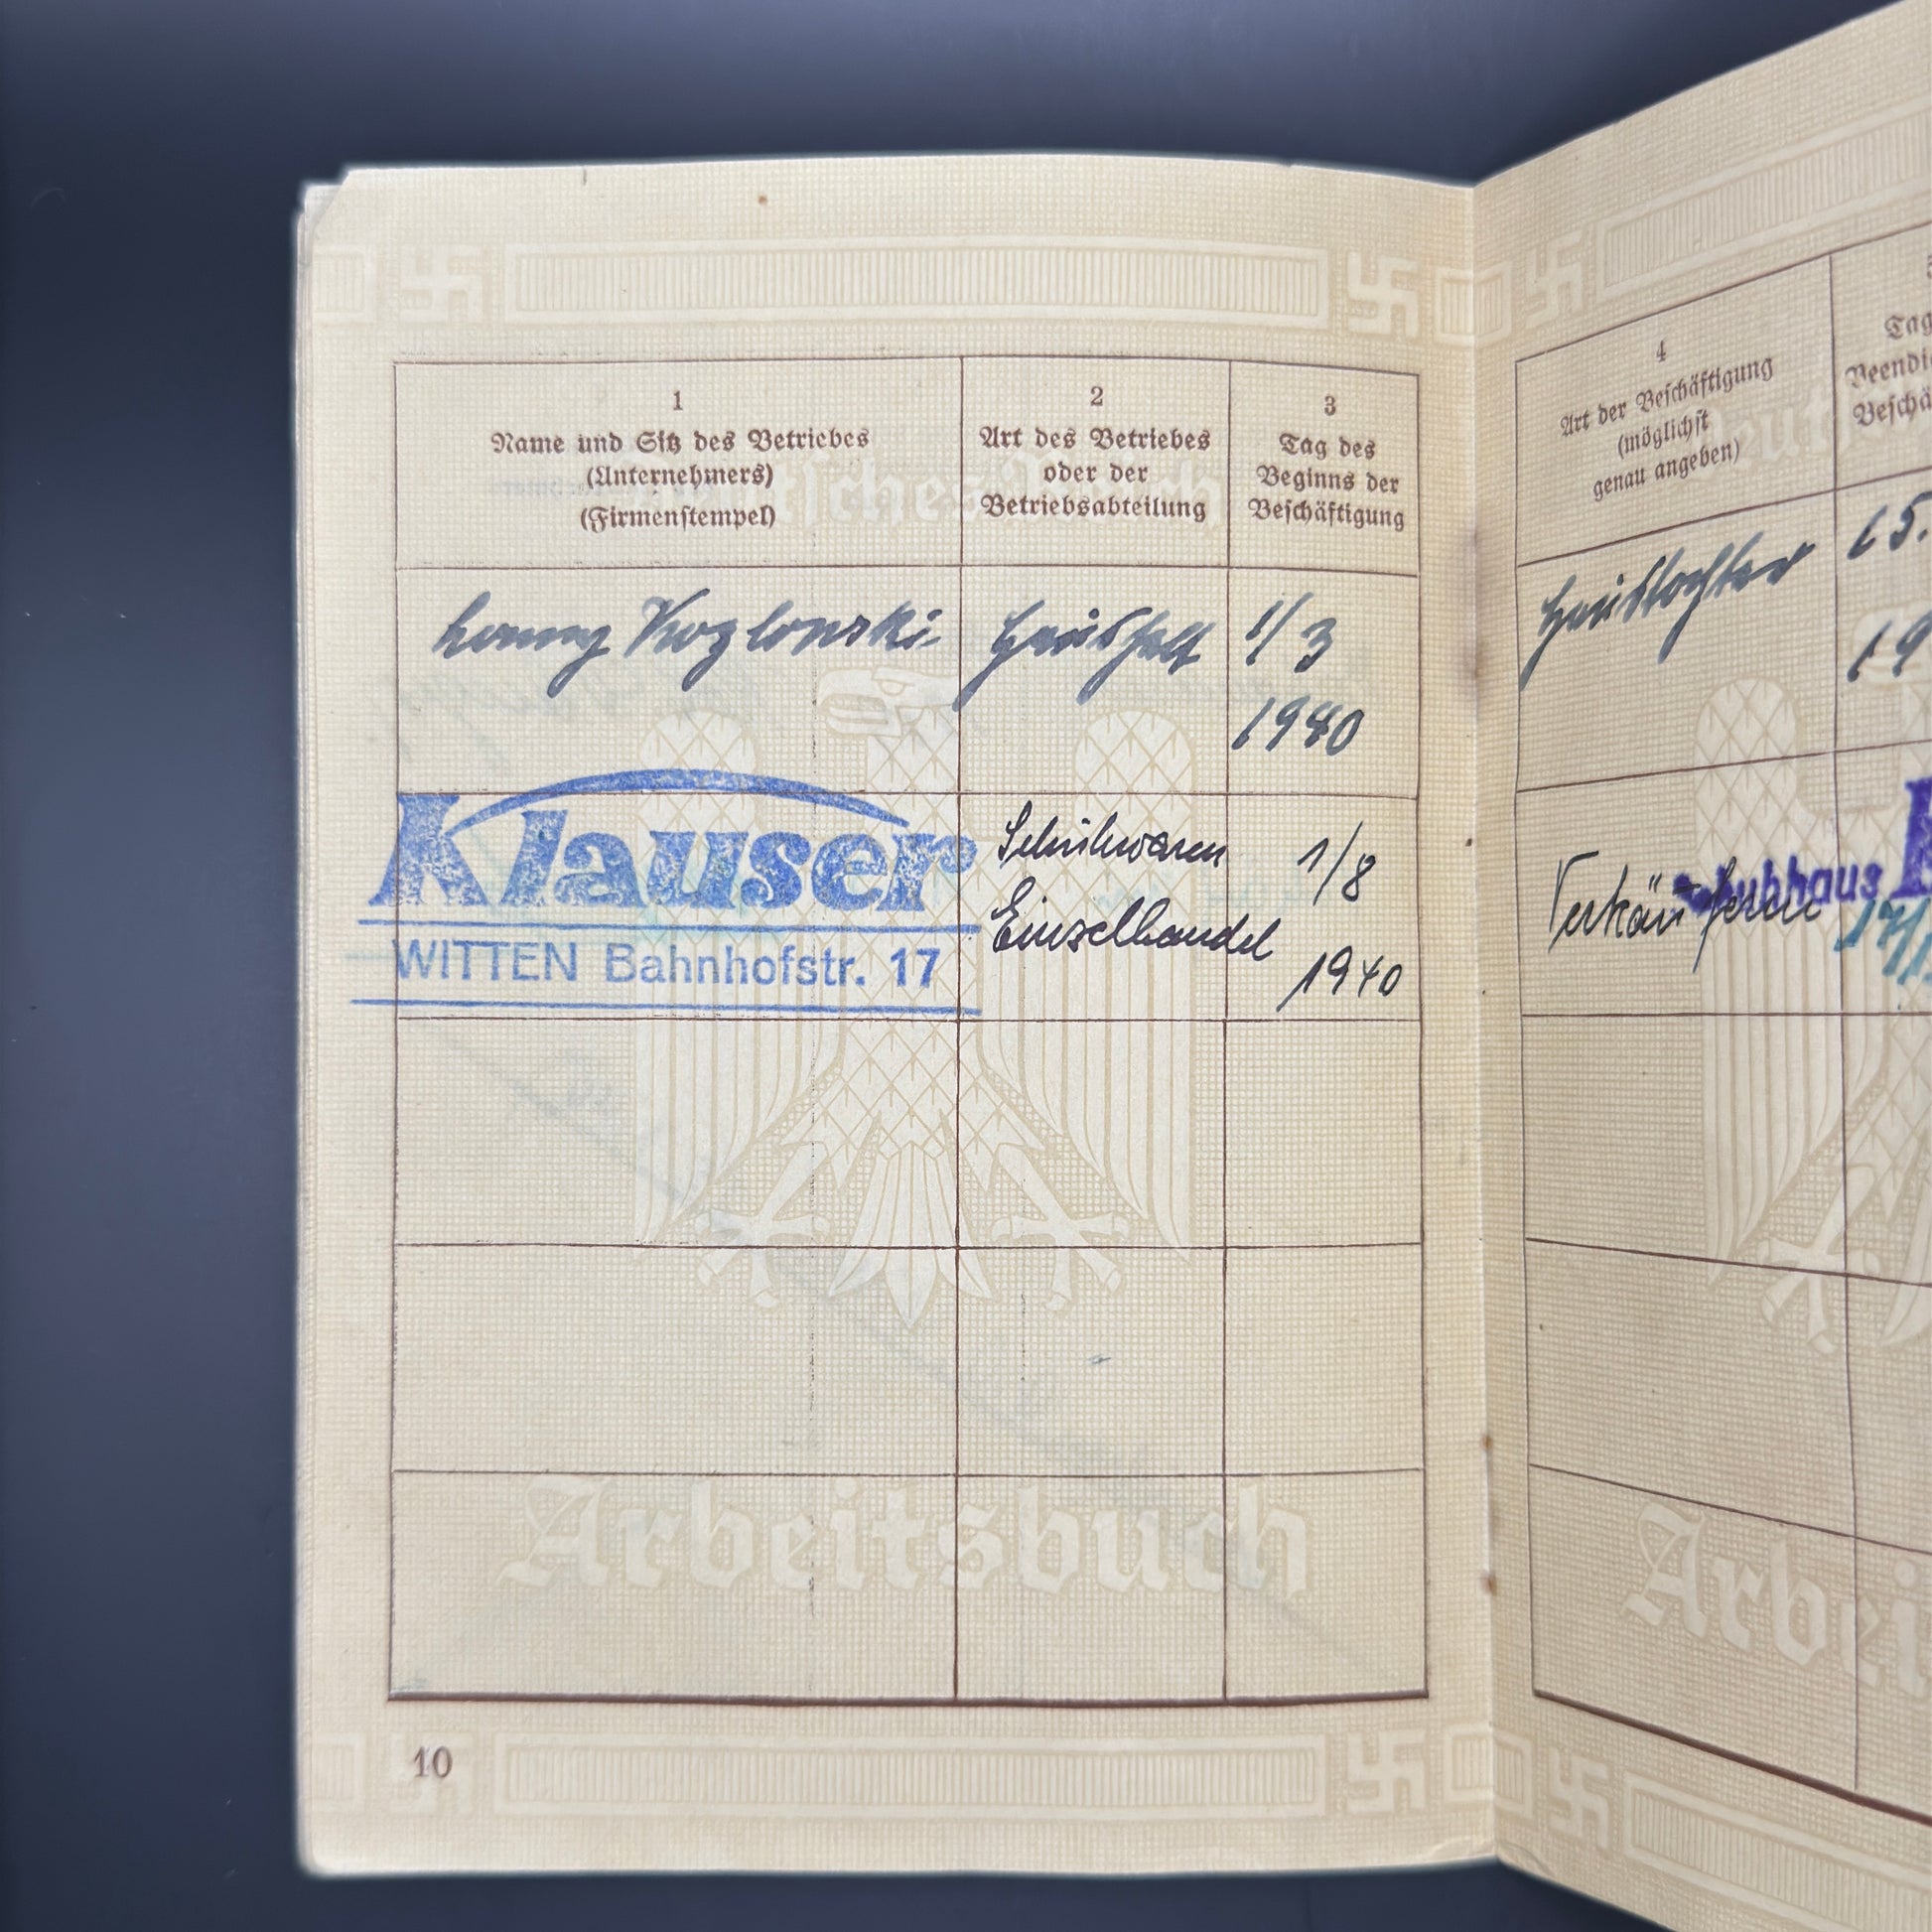 1
Name und Sitz des Betriebes
(Unternehmers)
(Firmenstempel)
2
Art des Betriebes
oder der
Betriebsabteilung
3
Tag des
Beginns der
Beschäftigung
Haushalt
1/3
1940
Klauser
WITTEN Bahnhofstr. 17
Schuhwaren
Einzelhandel
1/8
1940
Arbeitsbuch
10
4
Art der Beschäftigung
(möglichst
genau angeben)
Tag
Beendi
Beschä
Haustochter
15.
19
Verkäuferin
Schuhhaus K
17/
Arbei